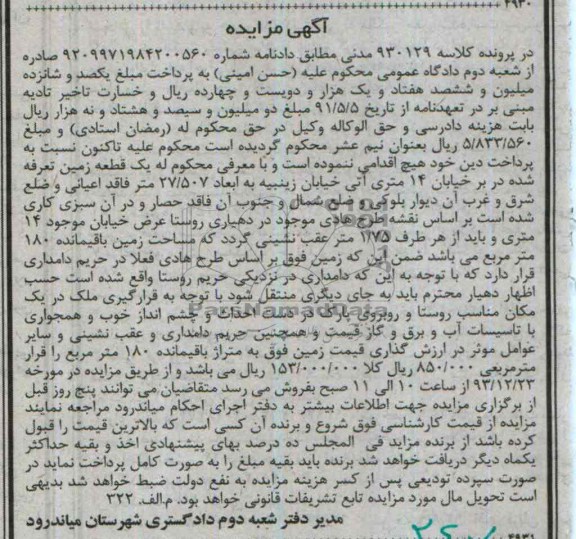 ۴۹۳۰
آگهی مزایده
در پرونده کلاسه ۹۳۰۱۲۹ مدنی مطابق دادنامه شماره ۹۲۰۹۹۷۱۹۸۴۲۰۰۵۶۰ صادره
از شعبه دوم دادگاه عمومی محکوم علیه (حسن امینی) به پرداخت مبلغ یکصد و شانزده
میلیون و ششصد هفتاد و یک هزار و دویست و چهارده ریال و خسارت تاخیر تادیه
مبنی بر در تعهدنامه از تاریخ ۹۱/۵/۵ مبلغ دو میلیون و سیصد و هشتاد و نه هزار ریال
بابت هزینه دادرسی و حق الوکاله وکیل در حق محکوم له (رمضان استادی) و مبلغ
۵/۸۳۳/۵۶۰ ریال بعنوان نیم عشر محکوم گردیده است محکوم علیه تاکنون نسبت به
پرداخت دین خود هیچ اقدامی ننموده است و با معرفی محکوم له یک قطعه زمین تعرفه
شده در بر خیابان ۱۴ متری آتی خیابان زینبیه به ابعاد ۲۷/۵۰۷ متر فاقد اعیانی و ضلع
شرق و غرب آن دیوار بلوکی و ضلع شمال و جنوب آن فاقد حصار و در آن سبزی کاری
شده است بر اساس نقشه طرح هادی موجود در دهیاری روستا عرض خیابان موجود ۱۴
متری و باید از هر طرف ۱/۷۵ متر عقب نشینی گردد که مساحت زمین باقیمانده ۱۸۰
متر مربع می باشد ضمن این که زمین فوق بر اساس طرح هادی فعلا در حریم دامداری
قرار دارد که با توجه به این که دامداری در نزدیکی حریم روستا واقع شده است حسب
اظهار دهیار محترم باید به جای دیگری منتقل شود با توجه به قرارگیری ملک در یک
مکان مناسب روستا و روبروی پارک در دست احداث و چشم انداز خوب و همجواری
با تاسیسات آب و برق و گاز قیمت و همچنین حریم دامداری و عقب نشینی و سایر
عوامل موثر در ارزش گذاری قیمت زمین فوق به متراژ باقیمانده ۱۸۰ متر مربع را قرار
مترمربعی ۸۵۰/۰۰۰ ریال کلا ۱۵۳/۰۰۰/۰۰۰ ریال می باشد و از طریق مزایده در مورخه
۹۳/۱۲/۲۳ از ساعت ۱۰ الی ۱۱ صبح بفروش می رسد متقاضیان می توانند پنج روز قبل
از برگزاری مزایده جهت اطلاعات بیشتر به دفتر اجرای احکام میاندرود مراجعه نمایند
مزایده از قیمت کارشناسی فوق شروع و برنده آن کسی است که بالاترین قیمت را قبول
کرده باشد از برنده مزاید فی المجلس ده درصد بهای پیشنهادی اخذ و بقیه حداکثر
یکماه دیگر دریافت خواهد شد برنده باید بقیه مبلغ را به صورت کامل پرداخت نماید در
صورت سپرده تودیعی پس از کسر هزینه مزایده به نفع دولت ضبط خواهد شد بدیهی
است تحویل مال مورد مزایده تابع تشریفات قانونی خواهد بود. م.الف. ۳۲۲
مدیر دفتر شعبه دوم دادگستری شهرستان میاندرود
۴۹۳۱